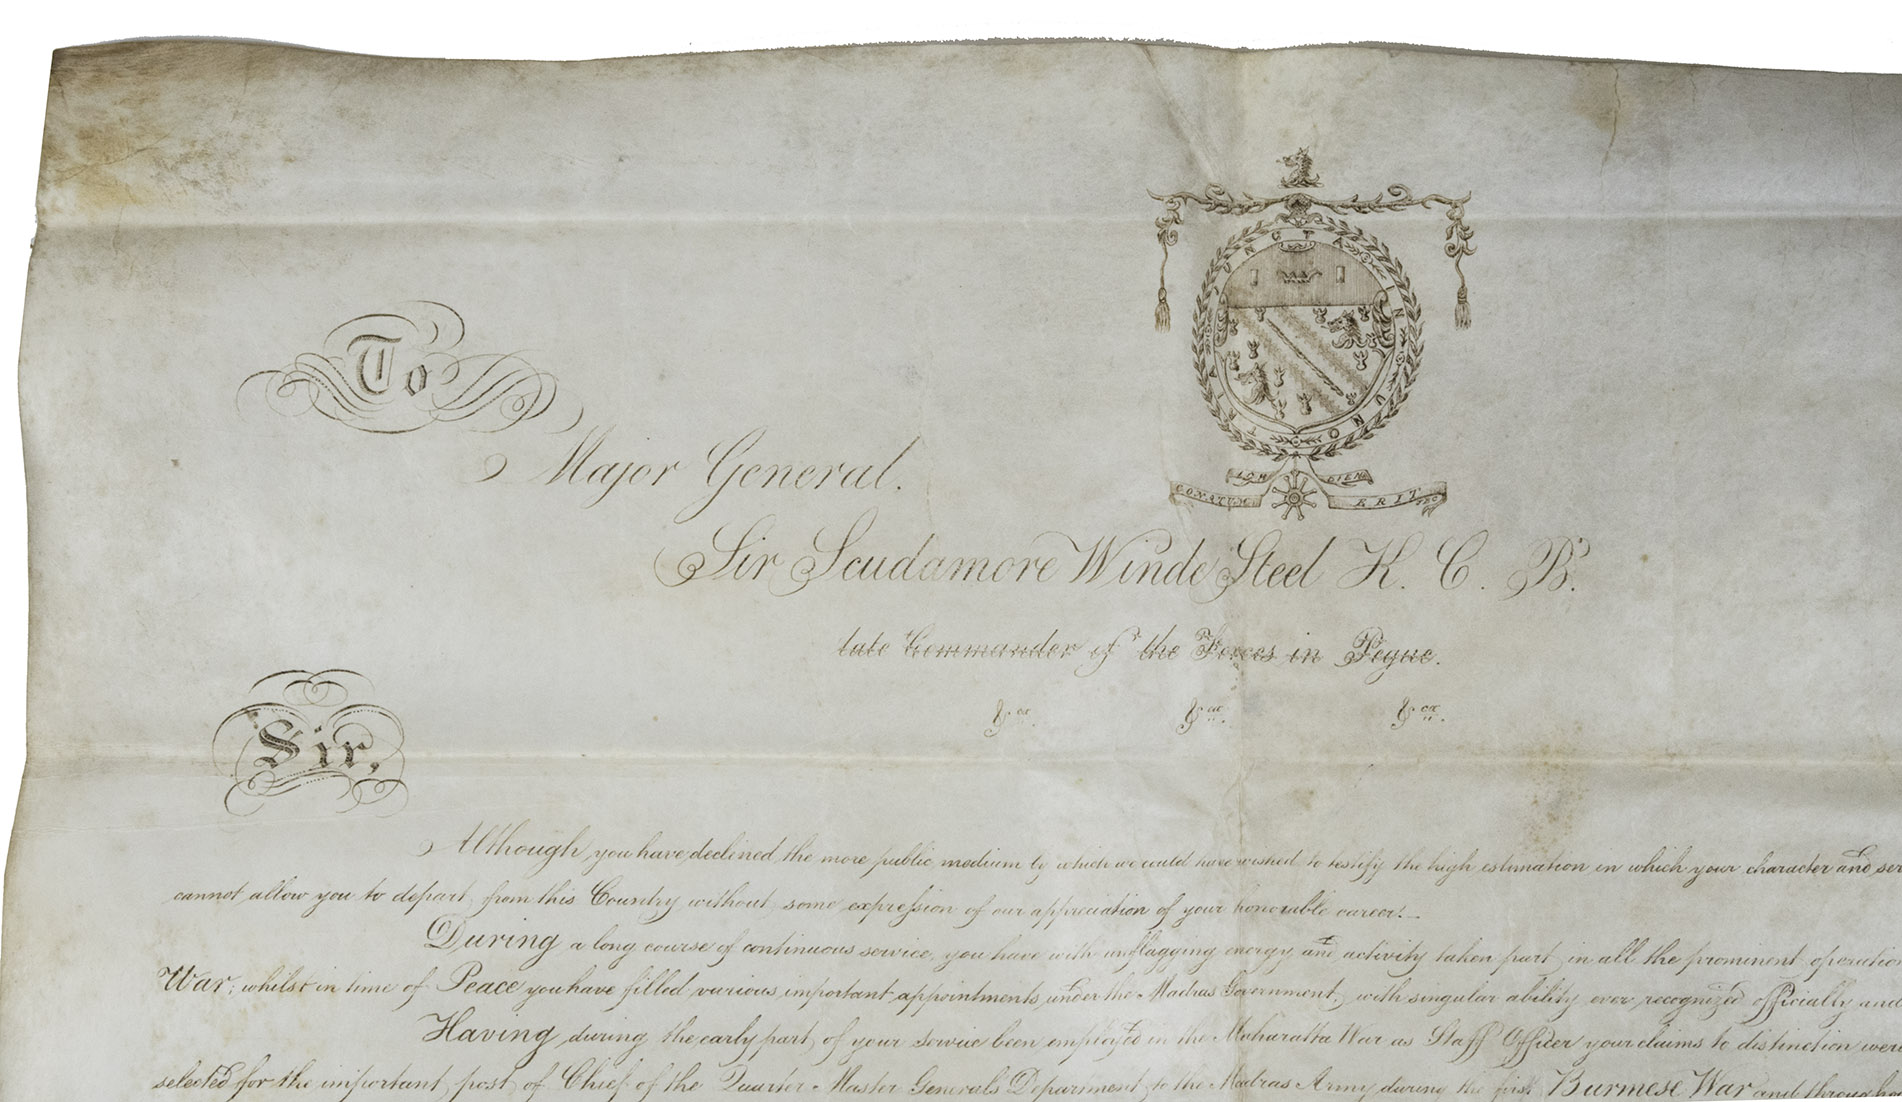 TRIA JUNCTA IN UNO
LOM DIEN
CONATUM ERIT
To
Major General.
Sir Scudamore Winde Steel K. C. B.
late Commander of the Forces in Pegue.
&ca. &ca. &ca.
Sir,
Although you have declined the more public medium by which we could have wished to testify the high estimation in which your character and ser
cannot allow you to depart from this Country without some expression of our appreciation of your honorable career.—
During a long course of continuous service, you have with unflagging energy and activity taken part in all the prominent operation
War; whilst in time of Peace you have filled various important appointments under the Madras Government, with singular ability ever recognized officially and
Having during the early part of your service been employed in the Maharatta War as Staff Officer your claims to distinction were
selected for the important post of Chief of the Quarter Master Generals Department to the Madras Army during the first Burmese War and through